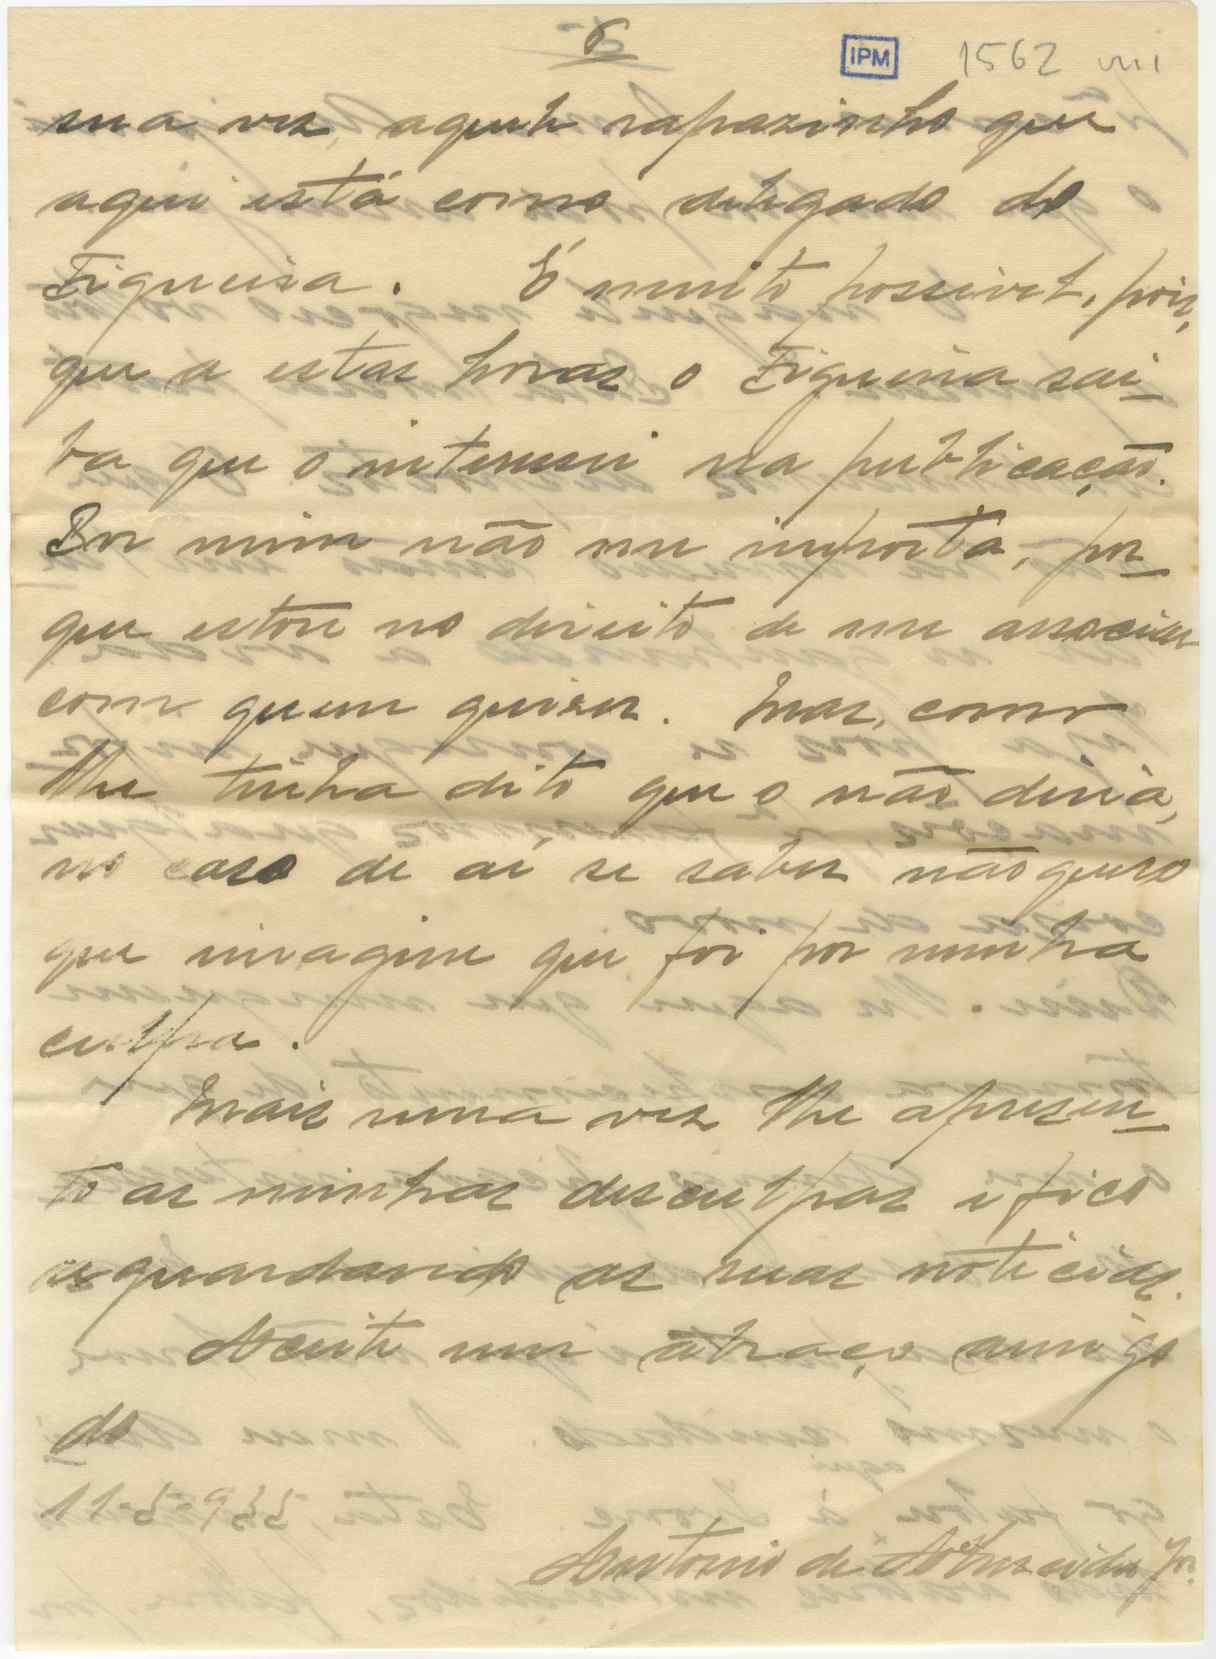 6
IPM 1562 VIII
sua vez, aquele rapazinho que
aqui está como delegado do
Figueira. É muito possivel, pois,
que a estas horas o Figueira sai-
ba que o intervim na publicação.
Por mim não me importa, por-
que estou no direito de me associar
com quem quiser. Mas, como
lhe tinha dito que o não diria,
no caso de aí se saber não quero
que imagine que foi por minha
culpa.
Mais uma vez lhe apresen-
to as minhas desculpas e fico
aguardando as suas noticias.
Aceite um abraço amigo
do
11-5-935
Antonio de